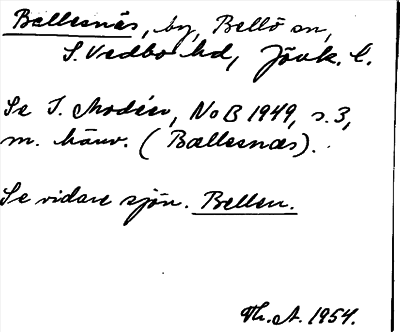 Bellenäs, by, Bellö sn,
S. Vedbo hd, Jönk. l.
Se I. Modéer, NoB 1949, s. 3,
m. hänv. (Bællesnæs).
Se vidare sjön. Bellen.
Th. A. 1954.